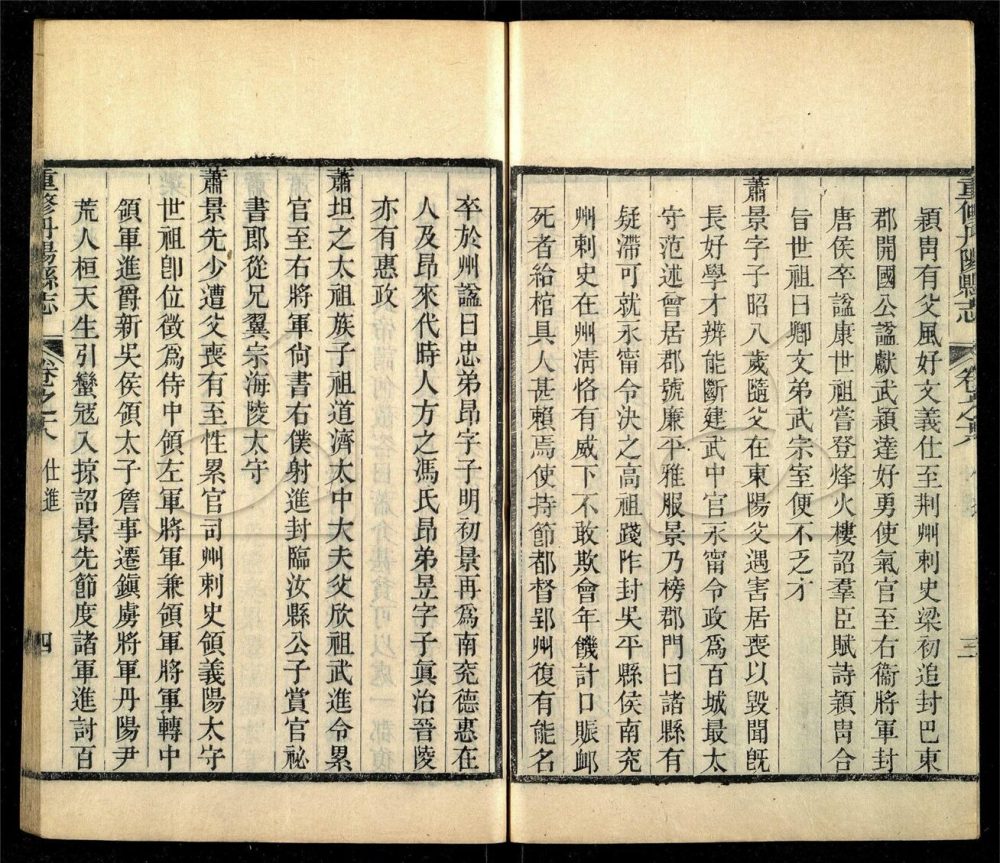 重修丹陽縣志
卷之十八
三
穎冑有父風好文義仕至荆州刺史梁初追封巴東
郡開國公諡獻武穎達好勇使氣官至右衞將軍封
唐侯卒諡康世祖嘗登烽火樓詔羣臣賦詩穎冑合
旨世祖曰卿文弟武宗室便不乏才
蕭景字子昭八歲隨父在東陽父遇害居喪以毀聞旣
長好學才辨能斷建武中官永甯令政爲百城最太
守范述曾居郡號廉平雅服景乃榜郡門曰諸縣有
疑滯可就永甯令決之高祖踐阼封吳平縣侯南兖
州刺史在州淸恪有威下不敢欺會年饑計口賑䘏
死者給棺具人甚賴焉使持節都督郢州復有能名
卒於州諡曰忠弟昂字子明初景再爲南兖德惠在
人及昂來代時人方之馮氏昂弟昱字子眞治晉陵
亦有惠政
蕭坦之太祖族子祖道濟太中大夫父欣祖武進令累
官至右將軍尙書右僕射進封臨汝縣公子賞官祕
書郎從兄翼宗海陵太守
蕭景先少遭父喪有至性累官司州刺史領義陽太守
世祖卽位徵爲侍中領左軍將軍兼領軍將軍轉中
領軍進爵新吳侯領太子詹事遷鎭虜將軍丹陽尹
荒人桓天生引蠻寇入掠詔景先節度諸軍進討百
重修丹陽縣志
卷之十八 仕進
四